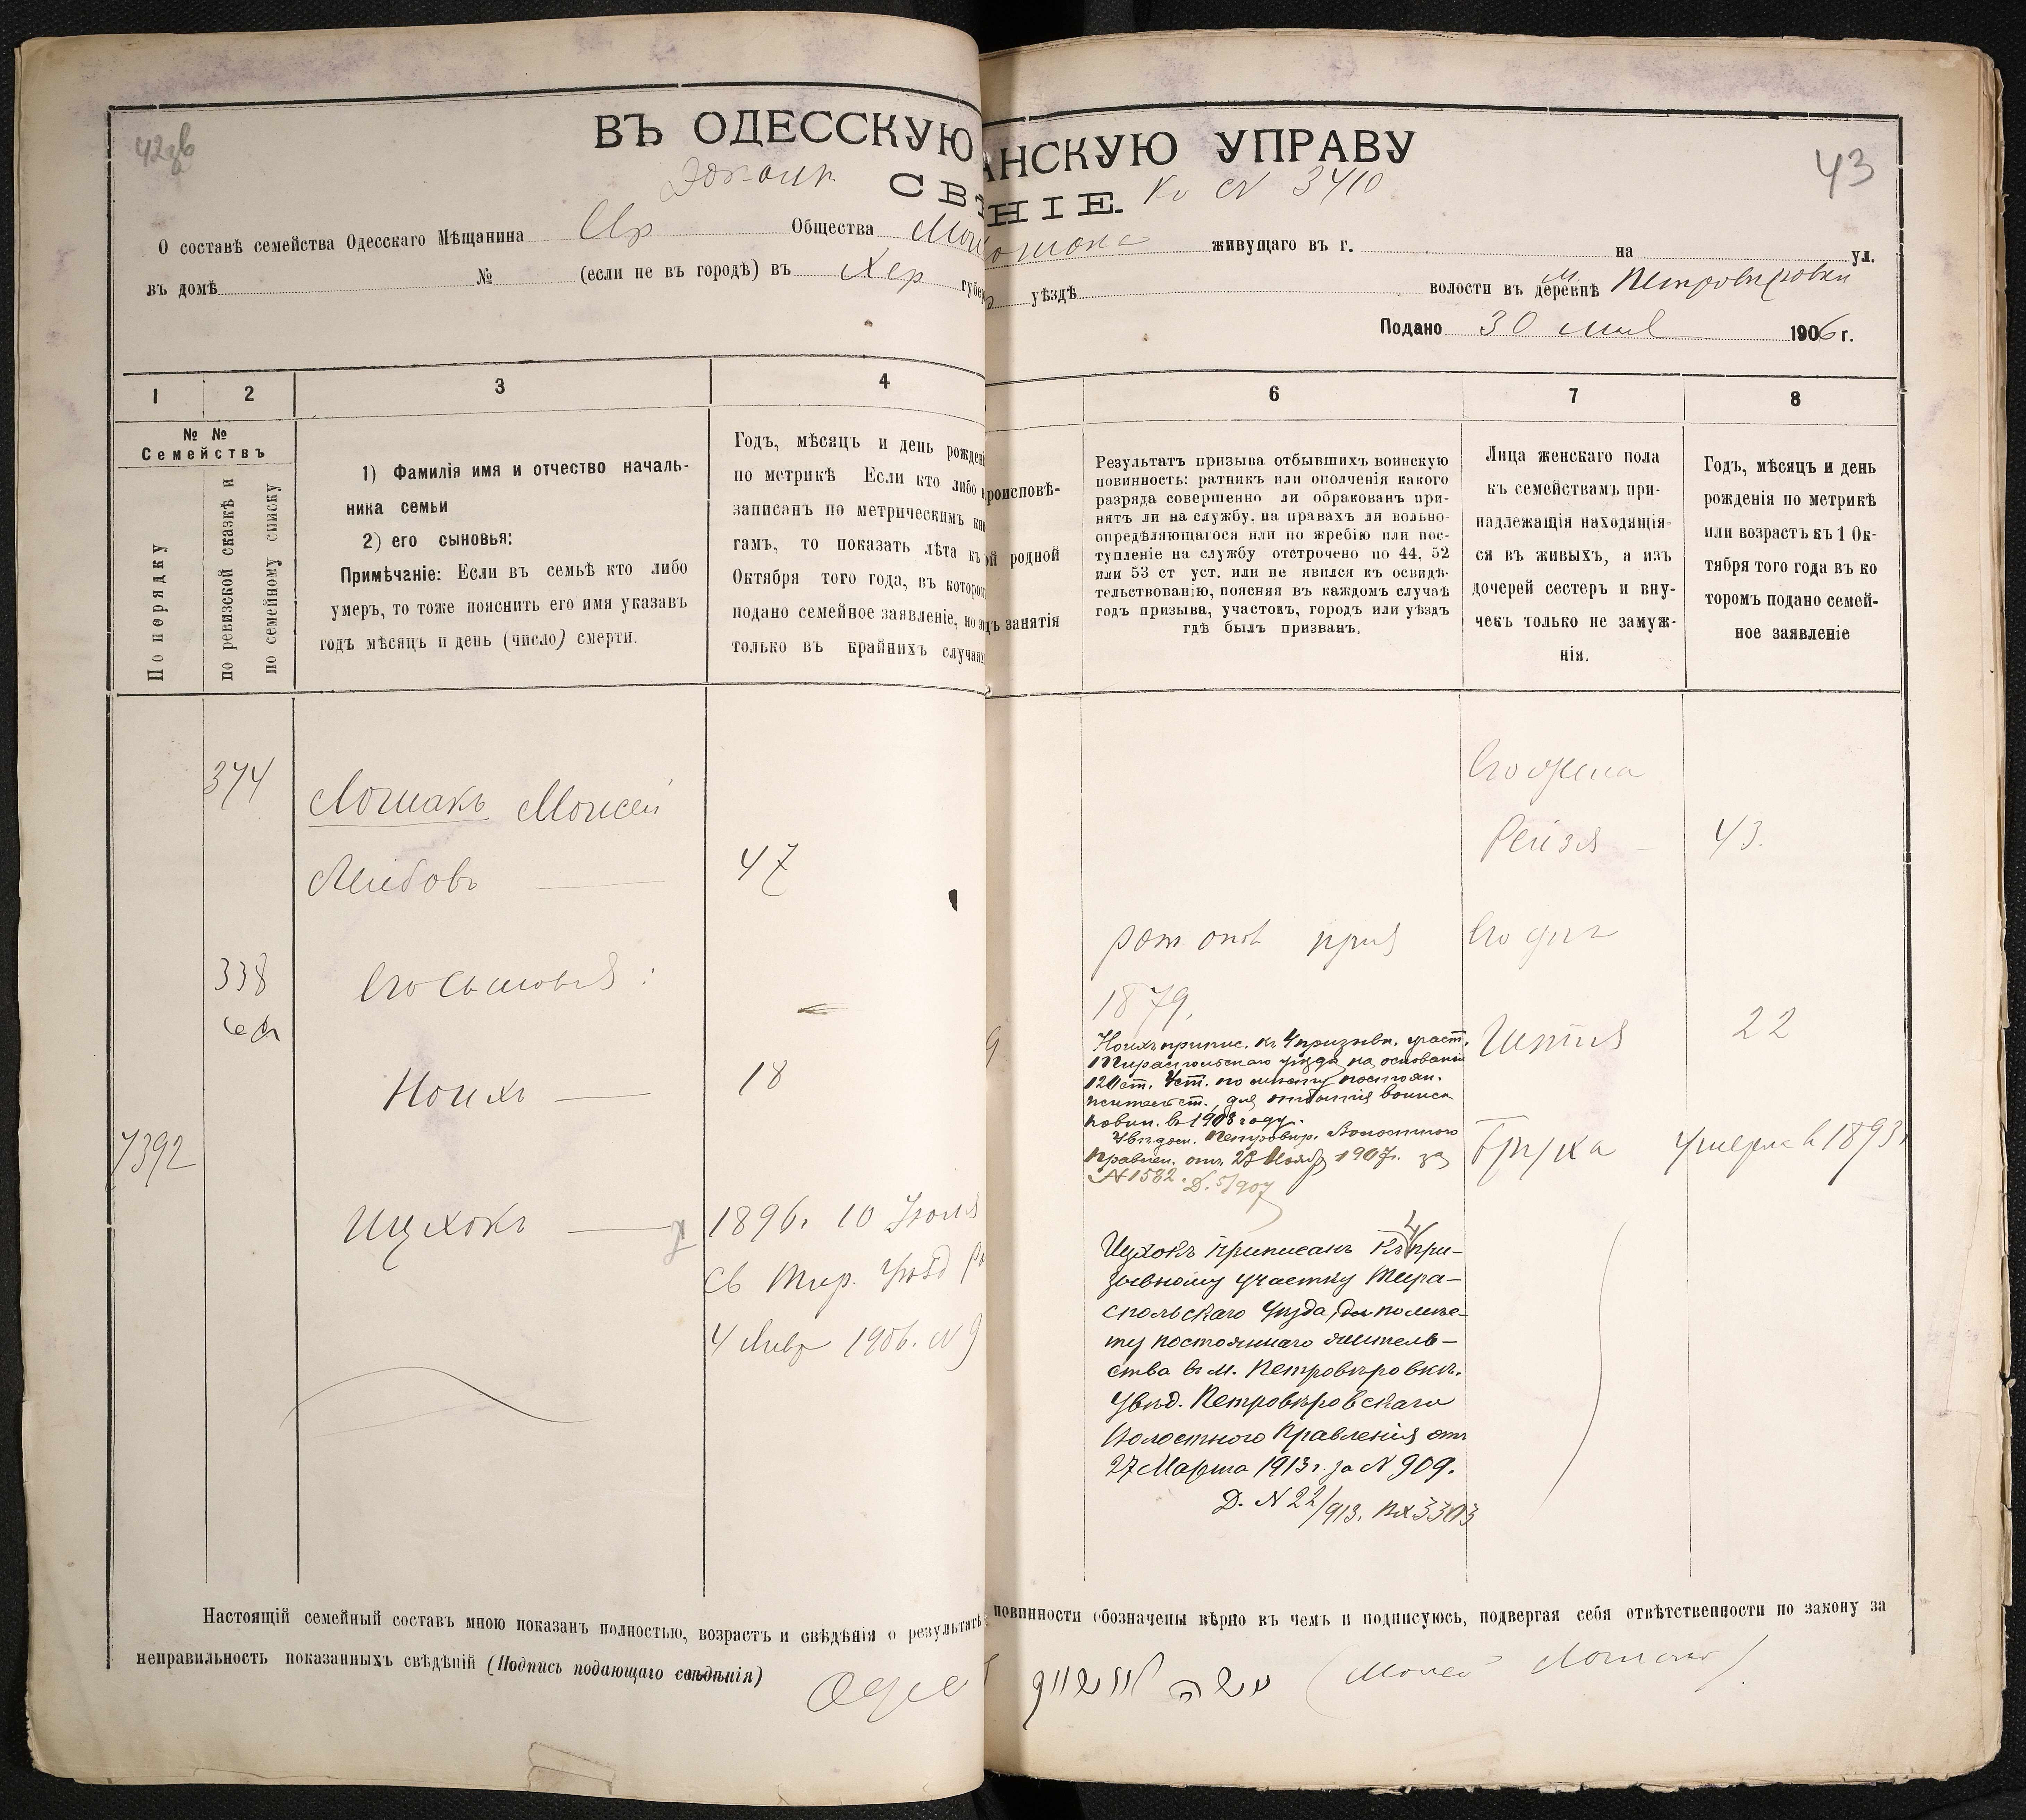 43
ВЪ ОДЕССКУЮ АНСКУЮ УПРАВУ
СВѢ НІЕ.
3410
О составѣ семейства Одесскаго Мѣщанина Общества живущаго въ г. на ул.
въ домѣ № (если не въ городѣ) въ Хер губе уѣздѣ волости въ деревнѣ м. Петровѣровки
Подано 30 мая 1906 г.
1 2 3 4 6 7 8
№ №
Семействъ
По порядку
по ревизской сказкѣ и
по семейному списку
1) Фамилія имя и отчество началь-
ника семьи
2) его сыновья:
Примѣчаніе: Если въ семьѣ кто либо
умеръ, то тоже пояснить его имя указавъ
годъ мѣсяцъ и день (число) смерти.
Годъ, мѣсяцъ и день рожден
по метрикѣ Если кто либо н
записанъ по метрическимъ кни
гамъ, то показать лѣта къ
Октября того года, въ которо
подано семейное заявленіе, но э
только въ крайнихъ случая
роисповѣ-
й родной
дъ занятія
Результатъ призыва отбывшихъ воинскую
повинность: ратникъ или ополченія какого
разряда совершенно ли обракованъ при-
нятъ ли на службу, на правахъ ли вольно-
опредѣляющагося или по жребію или пос-
тупленіе на службу отстрочено по 44, 52
или 53 ст уст. или не явился къ освидѣ-
тельствованію, поясняя въ каждомъ случаѣ
годъ призыва, участокъ, городъ или уѣздъ
гдѣ былъ призванъ.
Лица женскаго пола
къ семействамъ при-
надлежащія находящія-
ся въ живыхъ, а изъ
дочерей сестеръ и вну-
чекъ только не замуж-
нія.
Годъ, мѣсяцъ и день
рожденія по метрикѣ
или возрастъ къ 1 Ок-
тября того года въ ко
торомъ подано семей-
ное заявленіе
374
Лошакъ Моисей
Лейбовъ
47
Его жена
Рейзя 43.
338
Его сыновья:
1879.
Ноихъ 18
Ноихъ припис. къ 4 призывн. участ.
Тираспольскаго уѣзда на основаніи
120 ст. Уст. по мѣсту постоян.
жительст. для отбытія воинск
повин. въ 1908 году.
Увѣдом. Петровѣр. Волостного
Правлен. отъ 27 Ноябр 1907 г. за
№ 1582. Д. 5/907
22
7392
Умерла въ 1893
Ицхокъ
1896. 10 Іюля
св Тир. 
4 Янвр 1906. № 9
Ицхокъ приписанъ къ 4 при-
зывному участку Тира-
спольскаго уѣзда, по мѣс-
ту постояннаго житель-
ства въ м. Петровѣровкѣ.
Увѣд. Петровѣровскаго
Волостного Правленія отъ
27 Марта 1913 г. за № 909.
Д. № 22/913. Вх 3303
Настоящій семейный составъ мною показанъ полностью, возрастъ и свѣдѣнія о результатѣ повинности обозначены вѣрно въ чемъ и подписуюсь, подвергая себя отвѣтственности по закону за
неправильность показанныхъ свѣдѣній (Подпись подающаго свѣдѣнія)
משה (Моисей Лошакъ)